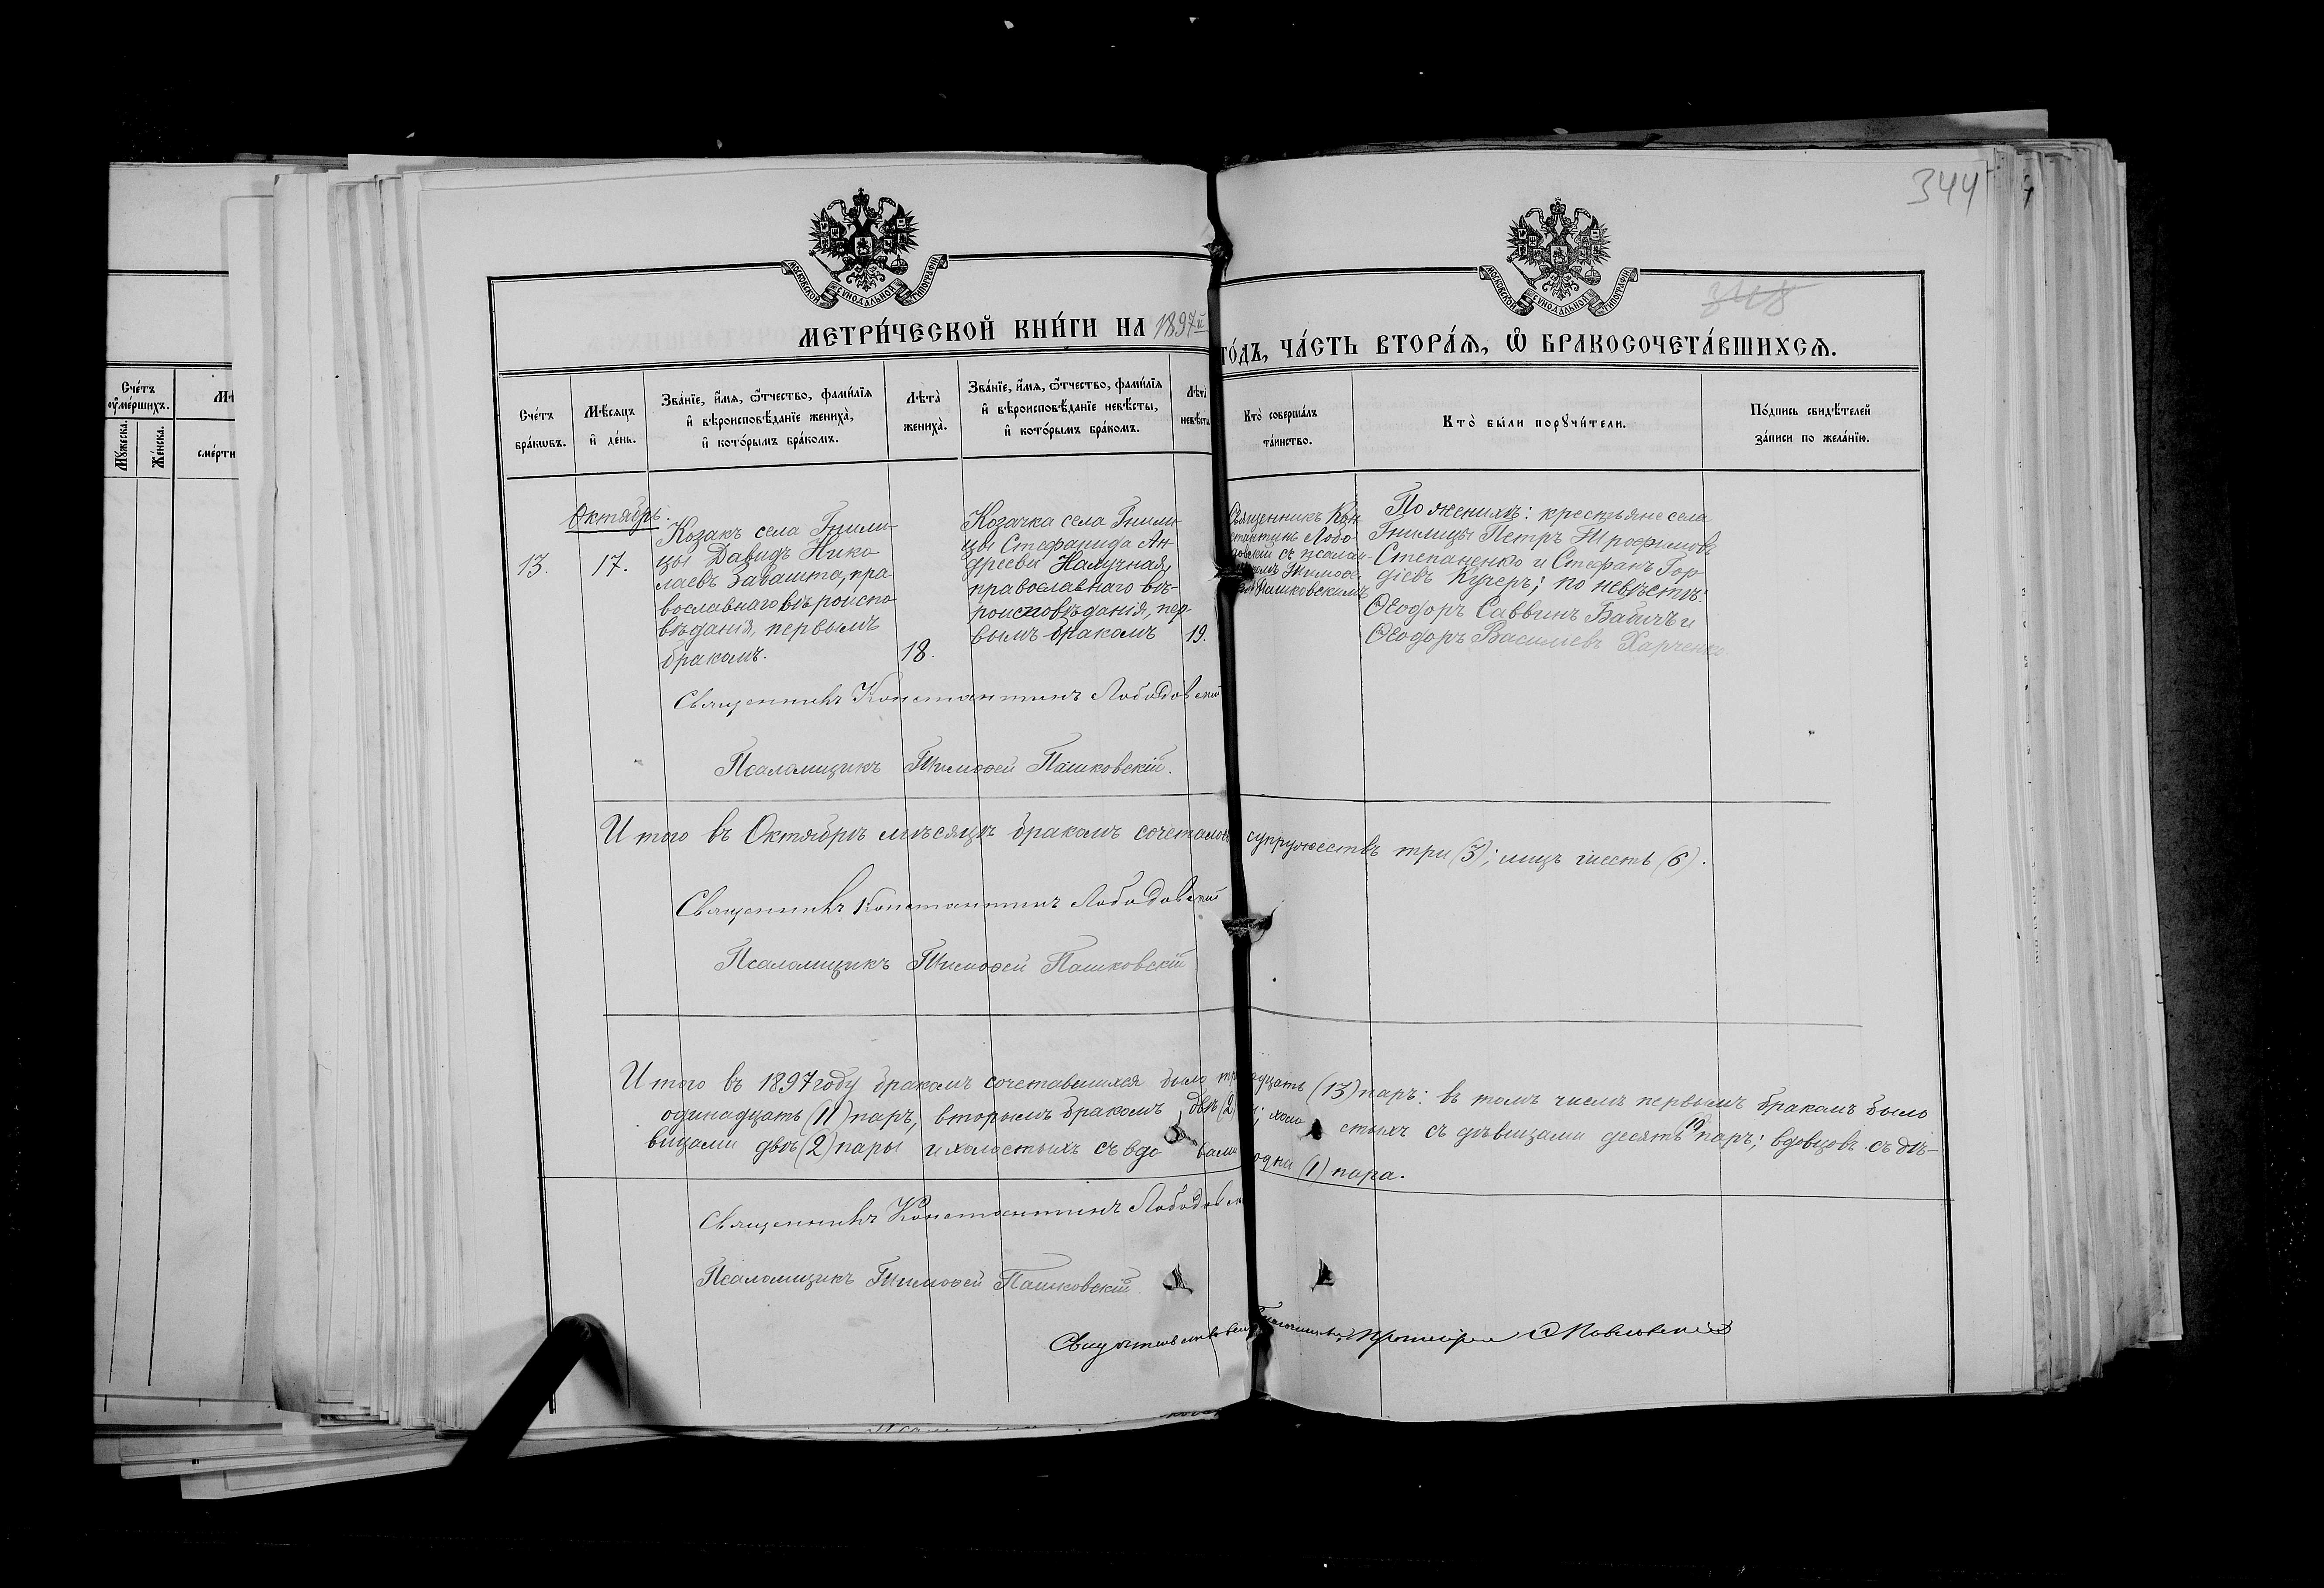 344
348
МОСКОВСКОЙ СѴНОДАЛЬНОЙ ТИПОГРАФІИ
МОСКОВСКОЙ СѴНОДАЛЬНОЙ ТИПОГРАФІИ
МЕТРИ́ЧЕСКОЙ КНИ́ГИ НА 1897й
ГО́ДЪ, ЧА́СТЬ ВТОРА́Ѧ, Ѡ҆ БРАКОСОЧЕТА́ВШИХСѦ.
Сче́тъ
оу҆ме́ршихъ.
Мꙋ́жеска.
Же́нска.
сме́рти
Сче́тъ
бра́кѡвъ.
Мѣ́сѧцъ
и҆ де́нь.
Зва́нїе, и҆́мѧ, ѻ҆́тчество, фами́лїѧ
и҆ вѣроисповѣ́данїе жениха̀,
и҆ кото́рымъ бра́комъ.
Лѣта̀
жениха̀.
Зва́нїе, и҆́мѧ, ѻ҆́тчество, фами́лїѧ
и҆ вѣроисповѣ́данїе невѣ́сты,
и҆ кото́рымъ бра́комъ.
Лѣта̀
невѣ́сты
Кто̀ соверша́лъ
та́инство.
Кто̀ бы́ли порꙋчи́тели.
По́дпись свидѣ́телей
за́писи по жела́нїю.
Октябрь.
13.
17.
Козакъ села Гнили-
цы Давидъ Нико-
лаевъ Забашта, пра-
вославнаго вѣроиспо-
вѣданія, первымъ
бракомъ.
18.
Козачка села Гнили-
цы Стефанида Ан-
дреева Научная,
православнаго вѣ-
роисповѣданія, пер-
вымъ бракомъ
19.
Священникъ Кон-
стантинъ Лобо-
довскій съ псалом-
Тимоѳе-
Пашковскимъ
По женихѣ: крестьяне села
Гнилицы Петръ Трофимовъ
Степаненко и Стефанъ Гор-
діевъ Кучеръ; по невѣстѣ:
Ѳеодоръ Саввинъ Бабичъ и
Ѳеодоръ Василіевъ Харченко
Священникъ Константинъ Лободовскій
Псаломщикъ Тимоѳей Пашковскій.
Итого въ Октябрѣ мѣсяцѣ бракомъ сочеталось супружествъ три (3); лицъ шесть (6).
Священникъ Константинъ Лободовскій
Псаломщикъ Тимоѳей Пашковскій
Итого въ 1897 году бракомъ сочетавшихся было тринадцать (13) паръ: въ томъ числѣ первымъ бракомъ было
одинадцать (11) паръ, вторымъ бракомъ двѣ (2); холостыхъ съ дѣвицами десять 10 паръ; вдовцовъ съ дѣ-
вицами двѣ (2) пары и холостыхъ съ вдовами одна (1) пара.
Священникъ Константинъ Лободовскій
Псаломщикъ Тимоѳей Пашковскій